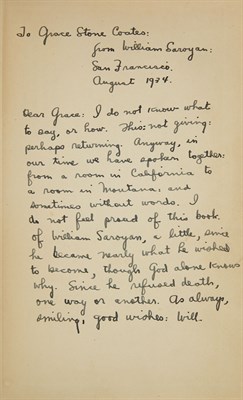 To Grace Stone Coates:
from William Saroyan:
San Francisco.
August 1934.
Dear Grace: I do not know what
to say, or how. This: not giving:
perhaps returning. Anyway, in
our time we have spoken together:
from a room in California to
a room in Montana: and
sometimes without words. I
do not feel proud of this book
of William Saroyan, a little, since
he became nearly what he wished
to become, though God alone knows
why. Since he refused death,
one way or another. As always,
smiling, good wishes: Will.